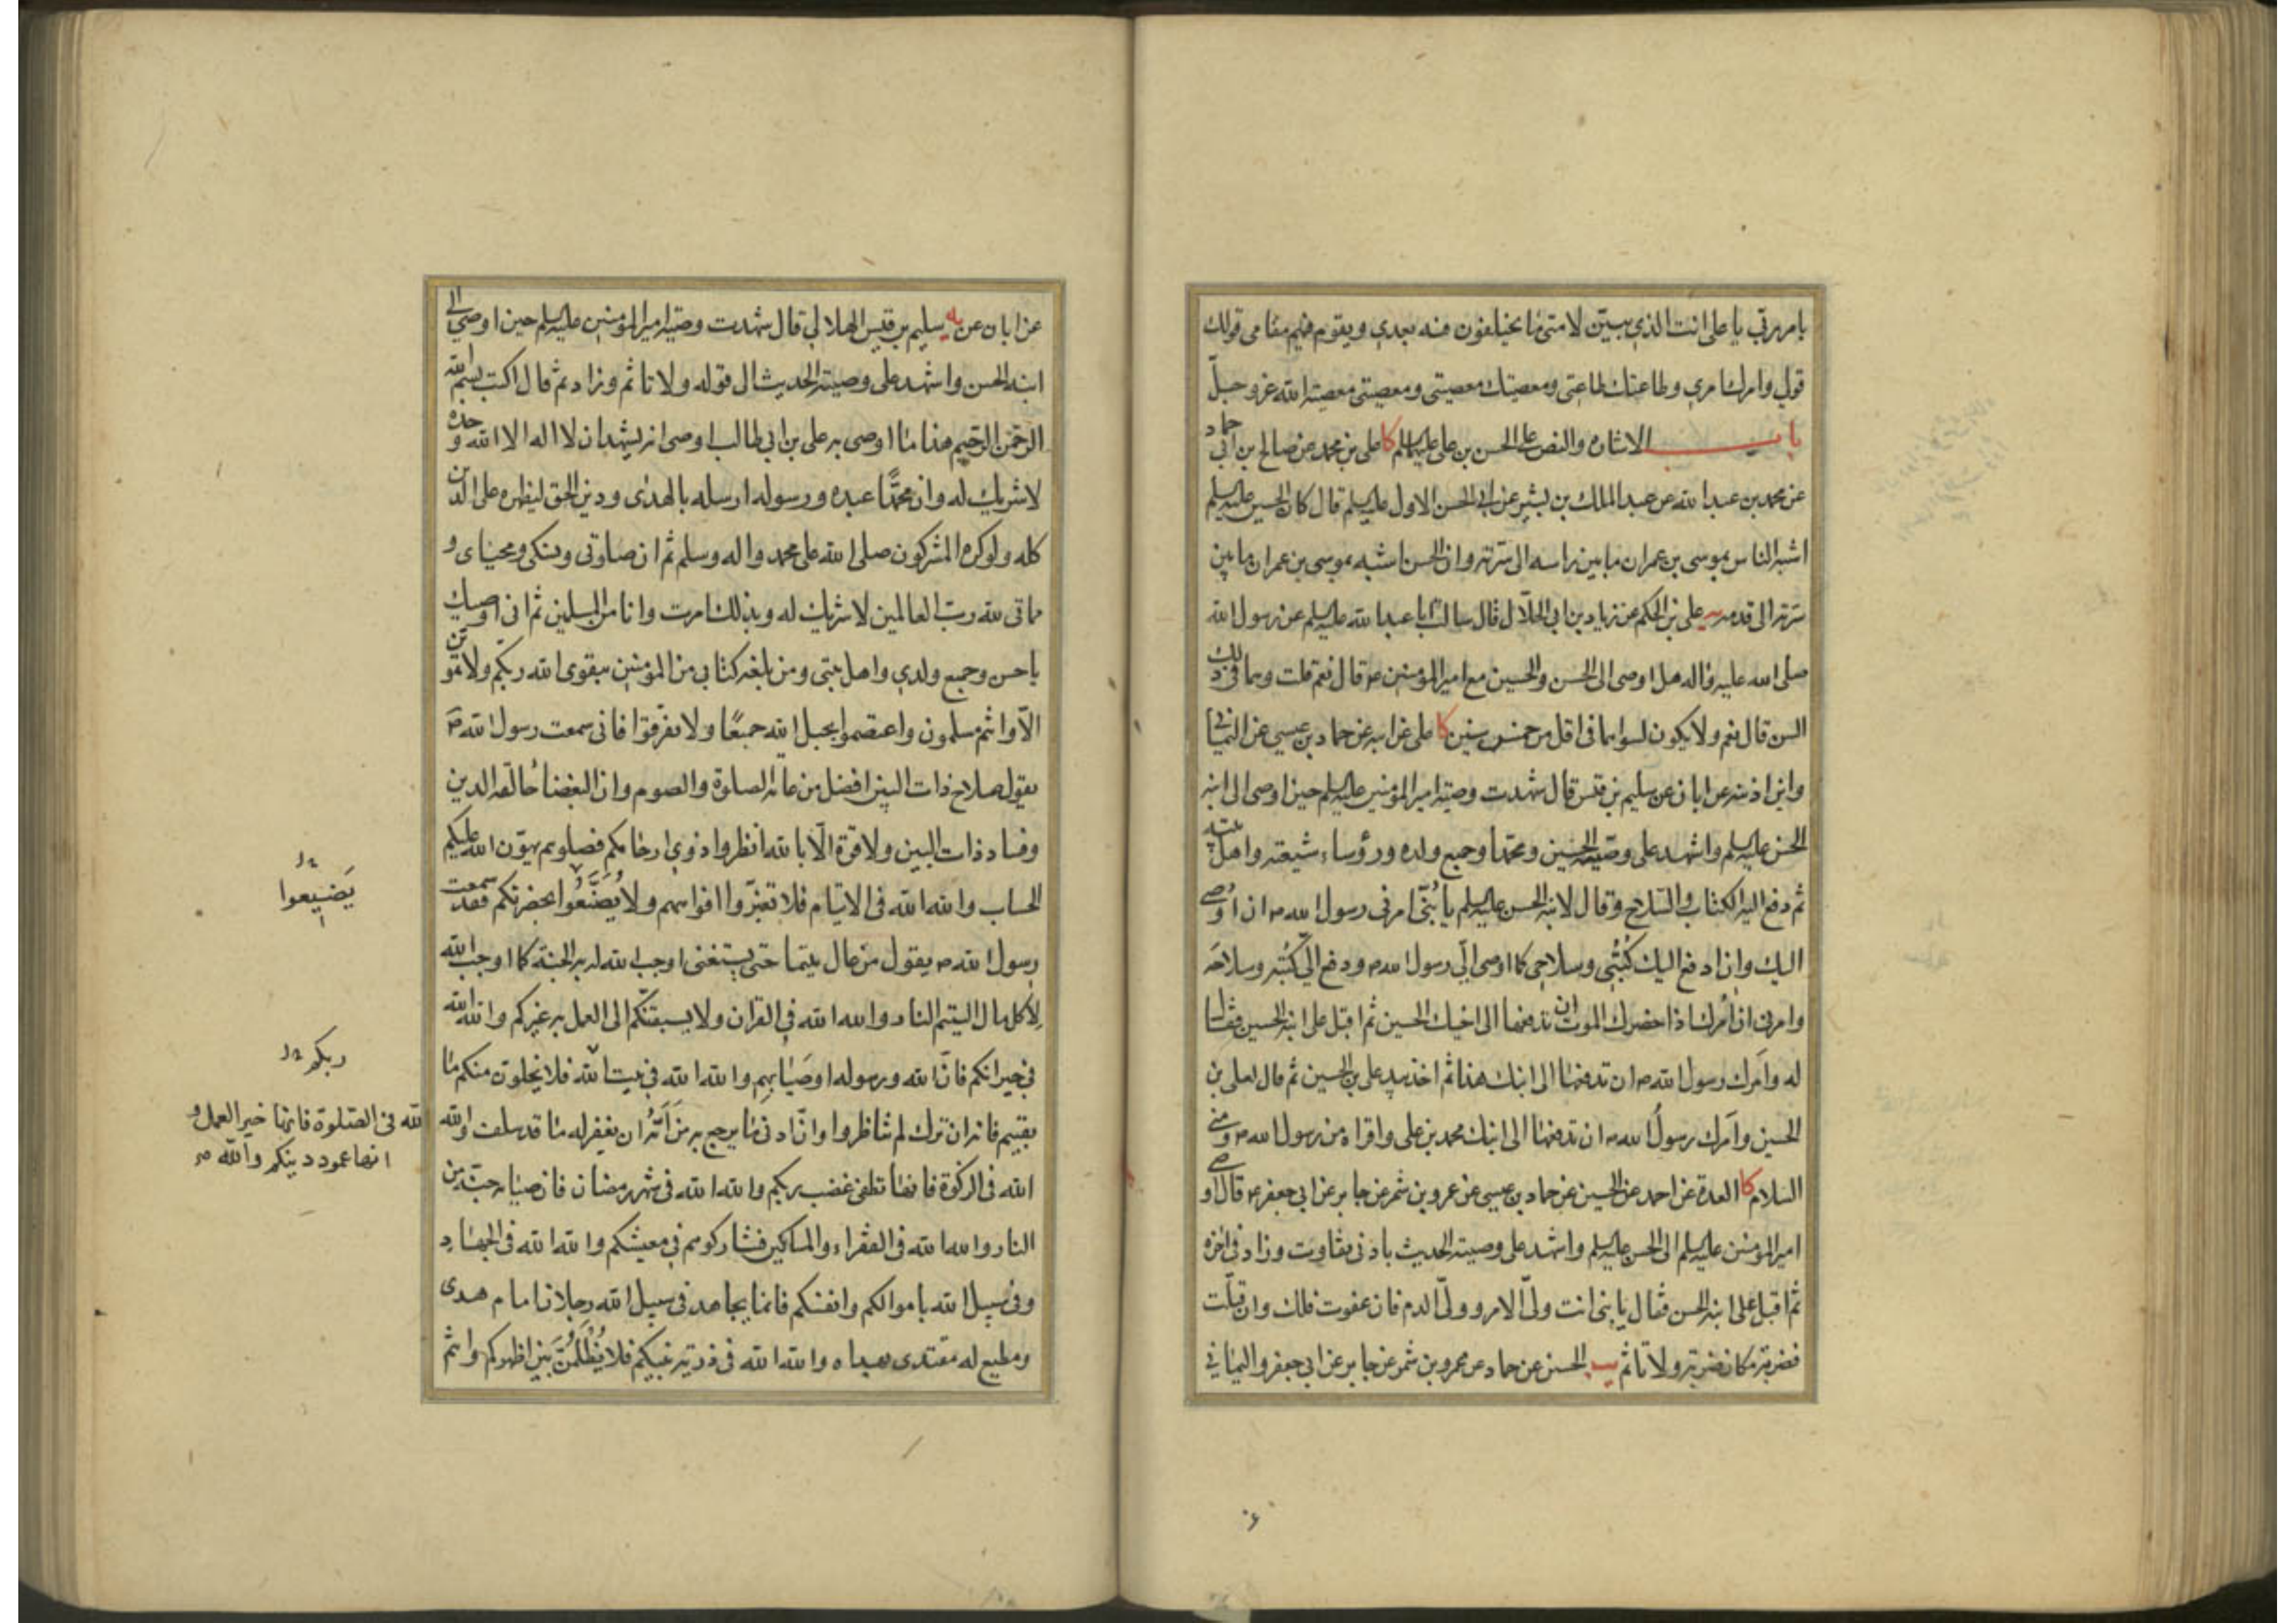 يامر ربي يا علي انت الذي تبين لامتي ما يختلفون فيه بعدي ويقوم فيهم مقامي قولك
قولي وامرك امري وطاعتك طاعتي ومعصيتك معصيتي ومعصيتي معصية الله عز وجل
باب الاشارة والنص على الحسن بن علي عليهما السلم كا علي بن محمد عن صالح بن ابي حماد
عن محمد بن عبد الله عن عبد الملك بن بشير عن ابي الحسن الاول عليه السلم قال كان الحسين عليه السلم
اشبه الناس بموسى بن عمران ما بين راسه الى سرته وان الحسن اشبه بموسى بن عمران ما بين
سرته الى قدمه علي بن الحكم عن زياد بن ابي الحلال قال سالت ابا عبد الله عليه السلم عن رسول الله
صلى الله عليه واله هل اوصى الى الحسن والحسين مع امير المؤمنين ع قال نعم قلت وهما في ذلك
السن قال نعم ولا يكون لسواهما في اقل من خمس سنين كا علي عن ابيه عن حماد بن عيسى عن اليماني
وابن اذينه عن ابان عن سليم بن قيس قال شهدت وصية امير المؤمنين عليه السلم حين اوصى الى ابنه
الحسن عليه السلم واشهد على وصيته الحسين ومحمدا وجميع ولده ورؤساء شيعته واهل بيته
ثم دفع اليه الكتاب والسلاح وقال لابنه الحسن عليه السلم يا بُنَيّ امرني رسول الله ص ان اوصي
اليك وان ادفع اليك كُتُبي وسلاحي كما اوصى اليّ رسول الله ص ودفع اليّ كتبه وسلاحه
وامرني ان امرك اذا حضرك الموت ان تدفعها الى اخيك الحسين ثم اقبل على ابنه الحسين فقال
له وامرك رسول الله ص ان تدفعها الى ابنك هذا ثم اخذ بيد علي بن الحسين ثم قال لعلي بن
الحسين وامرك رسولُ الله ص ان تدفعها الى ابنك محمد بن علي واقراه من رسول الله ص ومني
السلام كا العدة عن احمد عن الحسين عن حماد بن عيسى عن عمرو بن شمر عن جابر عن ابي جعفر ع قال اوصى
امير المؤمنين عليه السلم الى الحسن عليه السلم واشهد على وصيته الحديث بادنى تفاوت وزاد في اخره
ثم اقبل على ابنه الحسن فقال يا بني انت وليّ الامر ووليّ الدم فان عفوت فلك وان قتلت
فضربة مكان ضربة ولا تاثم يب الحسين عن حماد عن عمرو بن شمر عن جابر عن ابي جعفر واليماني
عن ابان عن يه سليم بن قيس الهلالي قال شهدت وصية امير المؤمنين عليه السلم حين اوصى الى
ابنه الحسن واشهد على وصيته الحديث الى قوله ولا تاثم وزاد ثم قال اكتب بسم الله
الرحمن الرحيم هذا ما اوصى به علي بن ابي طالب اوصى انه يشهد ان لا اله الا الله وحده
لا شريك له وان محمدًا عبده ورسوله ارسله بالهدى ودين الحق ليظهره على الدين
كله ولو كره المشركون صلى الله على محمد واله وسلم ثم ان صلوتي ونسكي ومحياي و
مماتي لله رب العالمين لا شريك له وبذلك امرت وانا من المسلمين ثم اني اوصيك
يا حسن وجميع ولدي واهل بيتي ومن بلغه كتابي من المؤمنين بتقوى الله ربكم ولا تموتن
الّا وانتم مسلمون واعتصموا بحبل الله جميعًا ولا تفرقوا فاني سمعت رسول الله ص
يقول صلاح ذات البين افضل من عامة الصلوة والصوم وان البغضاء حالقة الدين
وفساد ذات البين ولا قوة الّا بالله انظروا ذوي ارحامكم فصلوهم يهوّن الله عليكم
الحساب والله الله في الايتام فلا تغيّروا افواههم ولا يُضَيَّعُوا بحضرتكم فقد سمعت
رسول الله ص يقول من عال يتيما حتى يستغني اوجب الله له به الجنة كما اوجب الله
لآكل مال اليتيم النار والله الله في القران ولا يسبقنّكم الى العمل به غيركم والله الله
في جيرانكم فانّ الله ورسوله اوصيا بهم والله الله في بيت الله فلا يخلون منكم ما
بقيتم فانه ان ترك لم تناظروا وانّ ادنى ما يرجع به من اَمَّهُ ان يغفر له ما قد سلف والله
الله في الزكوة فانها تطفئ غضب ربكم والله الله في شهر رمضان فان صيامه جنّة من
النار والله الله في الفقراء والمساكين فشاركوهم في معيشتكم والله الله في الجهاد
وفي سبيل الله باموالكم وانفسكم فانما يجاهد في سبيل الله رجلان امام هدى
ومطيع له مقتدى بهداه والله الله في ذرية نبيكم فلا يُظْلَمُنَّ بين اظهركم وانتم
يَضيعوا
ربكم
لله في الصلوة فانها خير العمل و
انها عمود دينكم والله